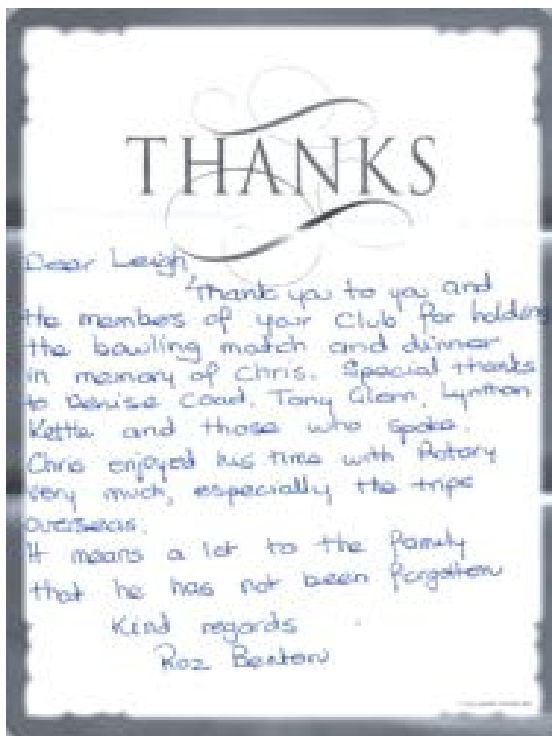 THANKS
Dear Leigh,
Thank you to you and
the members of your Club for holding
the bowling match and dinner
in memory of Chris. Special thanks
to Denise Coad, Tony Glenn, Lynton
Kettle and those who spoke.
Chris enjoyed his time with Rotary
very much, especially the trips
overseas.
It means a lot to the family
that he has not been forgotten
Kind regards
Roz Benton